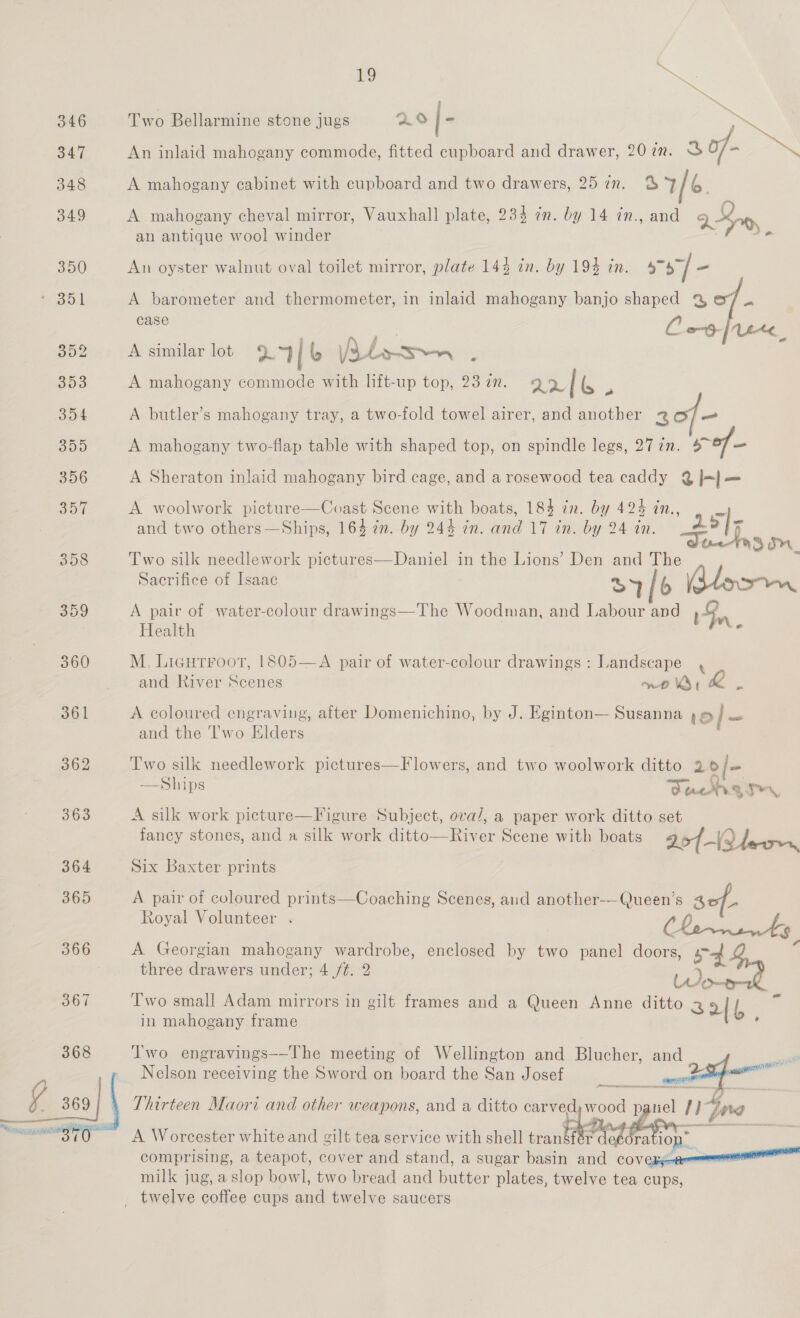 19
346 Two Bellarmine stone jugs 20/-
347 An inlaid mahogany commode, fitted cupboard and drawer, 20 in. 30/-
348 A mahogany cabinet with cupboard and two drawers, 25 in. 37/6.
349 A mahogany cheval mirror, Vauxhall plate, 23½ in. by 14 in., and
an antique wool winder
350 An oyster walnut oval toilet mirror, plate 14½ in. by 19½ in. 55/-
351 A barometer and thermometer, in inlaid mahogany banjo shaped
case
352 A similar lot 27/6 Bloom.
353 A mahogany commode with lift-up top, 23 in. 22/6.
354 A butler's mahogany tray, a two-fold towel airer, and another 20/-
355 A mahogany two-flap table with shaped top, on spindle legs, 27 in. 50/-
356 A Sheraton inlaid mahogany bird cage, and a rosewood tea caddy
357 A woolwork picture—Coast Scene with boats, 18½ in. by 42½ in.,
and two others—Ships, 16½ in. by 24½ in. and 17 in. by 24 in.
358 Two silk needlework pictures—Daniel in the Lions' Den and The
Sacrifice of Isaac 37/6 Bloom
359 A pair of water-colour drawings—The Woodman, and Labour and
Health
360 M. LIGHTFOOT, 1805—A pair of water-colour drawings : Landscape
and River Scenes
361 A coloured engraving, after Domenichino, by J. Eginton—Susanna 10/-
and the Two Elders
362 Two silk needlework pictures—Flowers, and two woolwork ditto 20/-
—Ships
363 A silk work picture—Figure Subject, oval, a paper work ditto set
fancy stones, and a silk work ditto—River Scene with boats 20/- Bloom
364 Six Baxter prints
365 A pair of coloured prints—Coaching Scenes, and another—Queen's 30/-
Royal Volunteer . Clements
366 A Georgian mahogany wardrobe, enclosed by two panel doors,
three drawers under; 4 ft. 2 Wood
367 Two small Adam mirrors in gilt frames and a Queen Anne ditto 32/6.
in mahogany frame
368 Two engravings—The meeting of Wellington and Blucher, and
Nelson receiving the Sword on board the San Josef
369 Thirteen Maori and other weapons, and a ditto carved wood panel
370 A Worcester white and gilt tea service with shell transfer decoration
comprising, a teapot, cover and stand, a sugar basin and cover, a
milk jug, a slop bowl, two bread and butter plates, twelve tea cups,
twelve coffee cups and twelve saucers